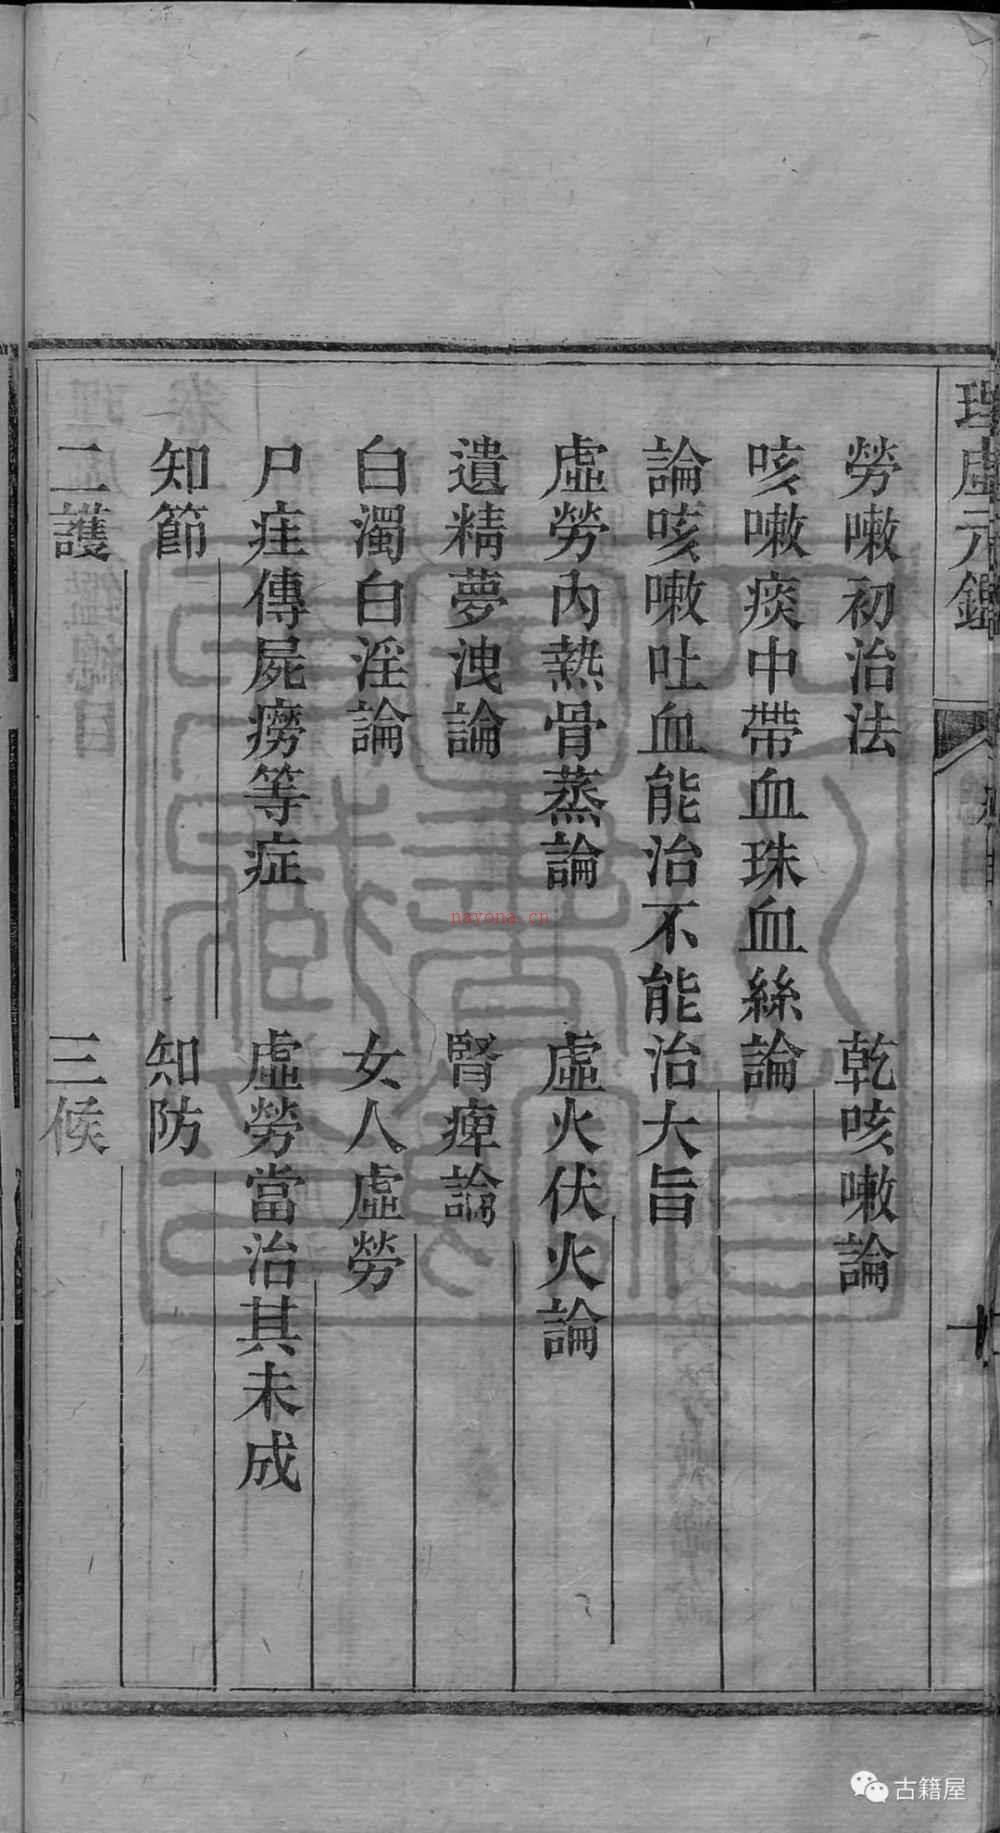 勞嗽初治法　乾咳嗽論
咳嗽痰中帶血珠血絲論
論咳嗽吐血能治不能治大旨
虛勞內熱骨蒸論　虛火伏火論
遺精夢洩論　腎痺論
白濁白淫論　女人虛勞
尸疰傳屍癆等症　虛勞當治其未成
知節　知防
二護　三候
nayona.cn
古籍屋